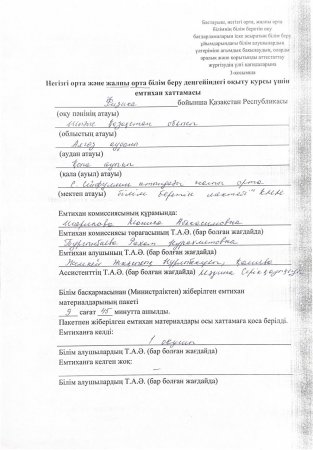 Бастауыш, негізгі орта, жалпы орта
білімнің білім беретін оқу
бағдарламаларын іске асыратын білім беру
ұйымдарындағы білім алушылардың
үлгеріміне ағымдық бақылаудың, оларды
аралық және қорытынды аттестаттау
жүргізудің үлгі қағидаларына
3-қосымша
Негізгі орта және жалпы орта білім беру деңгейіндегі оқыту курсы үшін
емтихан хаттамасы
Физика бойынша Қазақстан Республикасы
(оқу пәнінің атауы)
облысы
(облыстың атауы)
ауданы
(аудан атауы)
ауылы
(қала (ауыл) атауы)
С Сейфуллин атындағы жалпы орта
(мектеп атауы) білім беретін мектебі КММ
Емтихан комиссиясының құрамында:
Емтихан комиссиясы төрағасының Т.А.Ә. (бар болған жағдайда)
Емтихан алушының Т.А.Ә. (бар болған жағдайда)
Ассистенттің Т.А.Ә. (бар болған жағдайда)
Білім басқармасынан (Министрліктен) жіберілген емтихан
материалдарының пакеті
9 сағат 45 минутта ашылды.
Пакетпен жіберілген емтихан материалдары осы хаттамаға қоса берілді.
Емтиханға келді:
1 оқушы
Білім алушылардың Т.А.Ә. (бар болған жағдайда)
Емтиханға келген жоқ:
—
Білім алушылардың Т.А.Ә. (бар болған жағдайда)